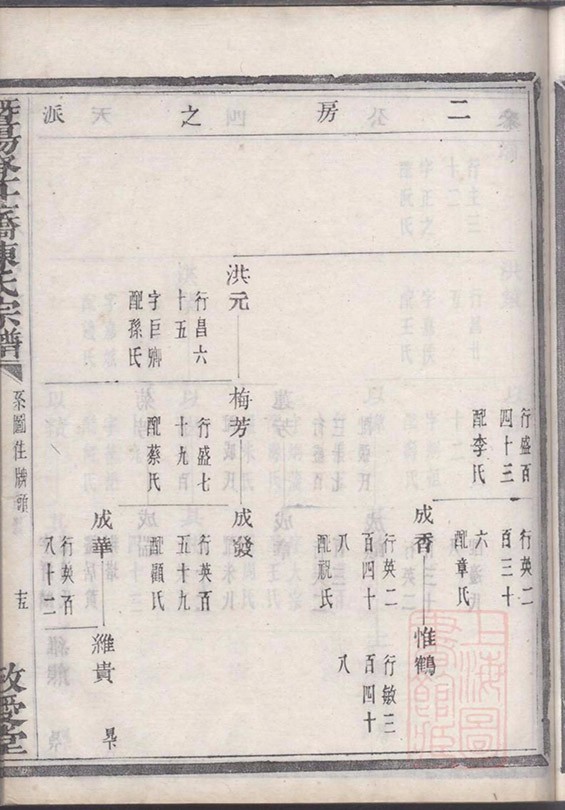 二房之派
行盛百
四十三
配李氏
行英二
百三十
六
配章氏
成香
惟鶴
行英二
百四十
八
配祝氏
行敏三
百四十
八
洪元
行昌六
十五
字巨卿
配孫氏
梅芳
行盛七
十九百
配蔡氏
成發
行英百
五十九
配顧氏
成華
行英百
八十二
維貴
暨陽
橋陳氏宗譜
系圖住牌頭
十五
敬愛堂
上海圖
書館藏